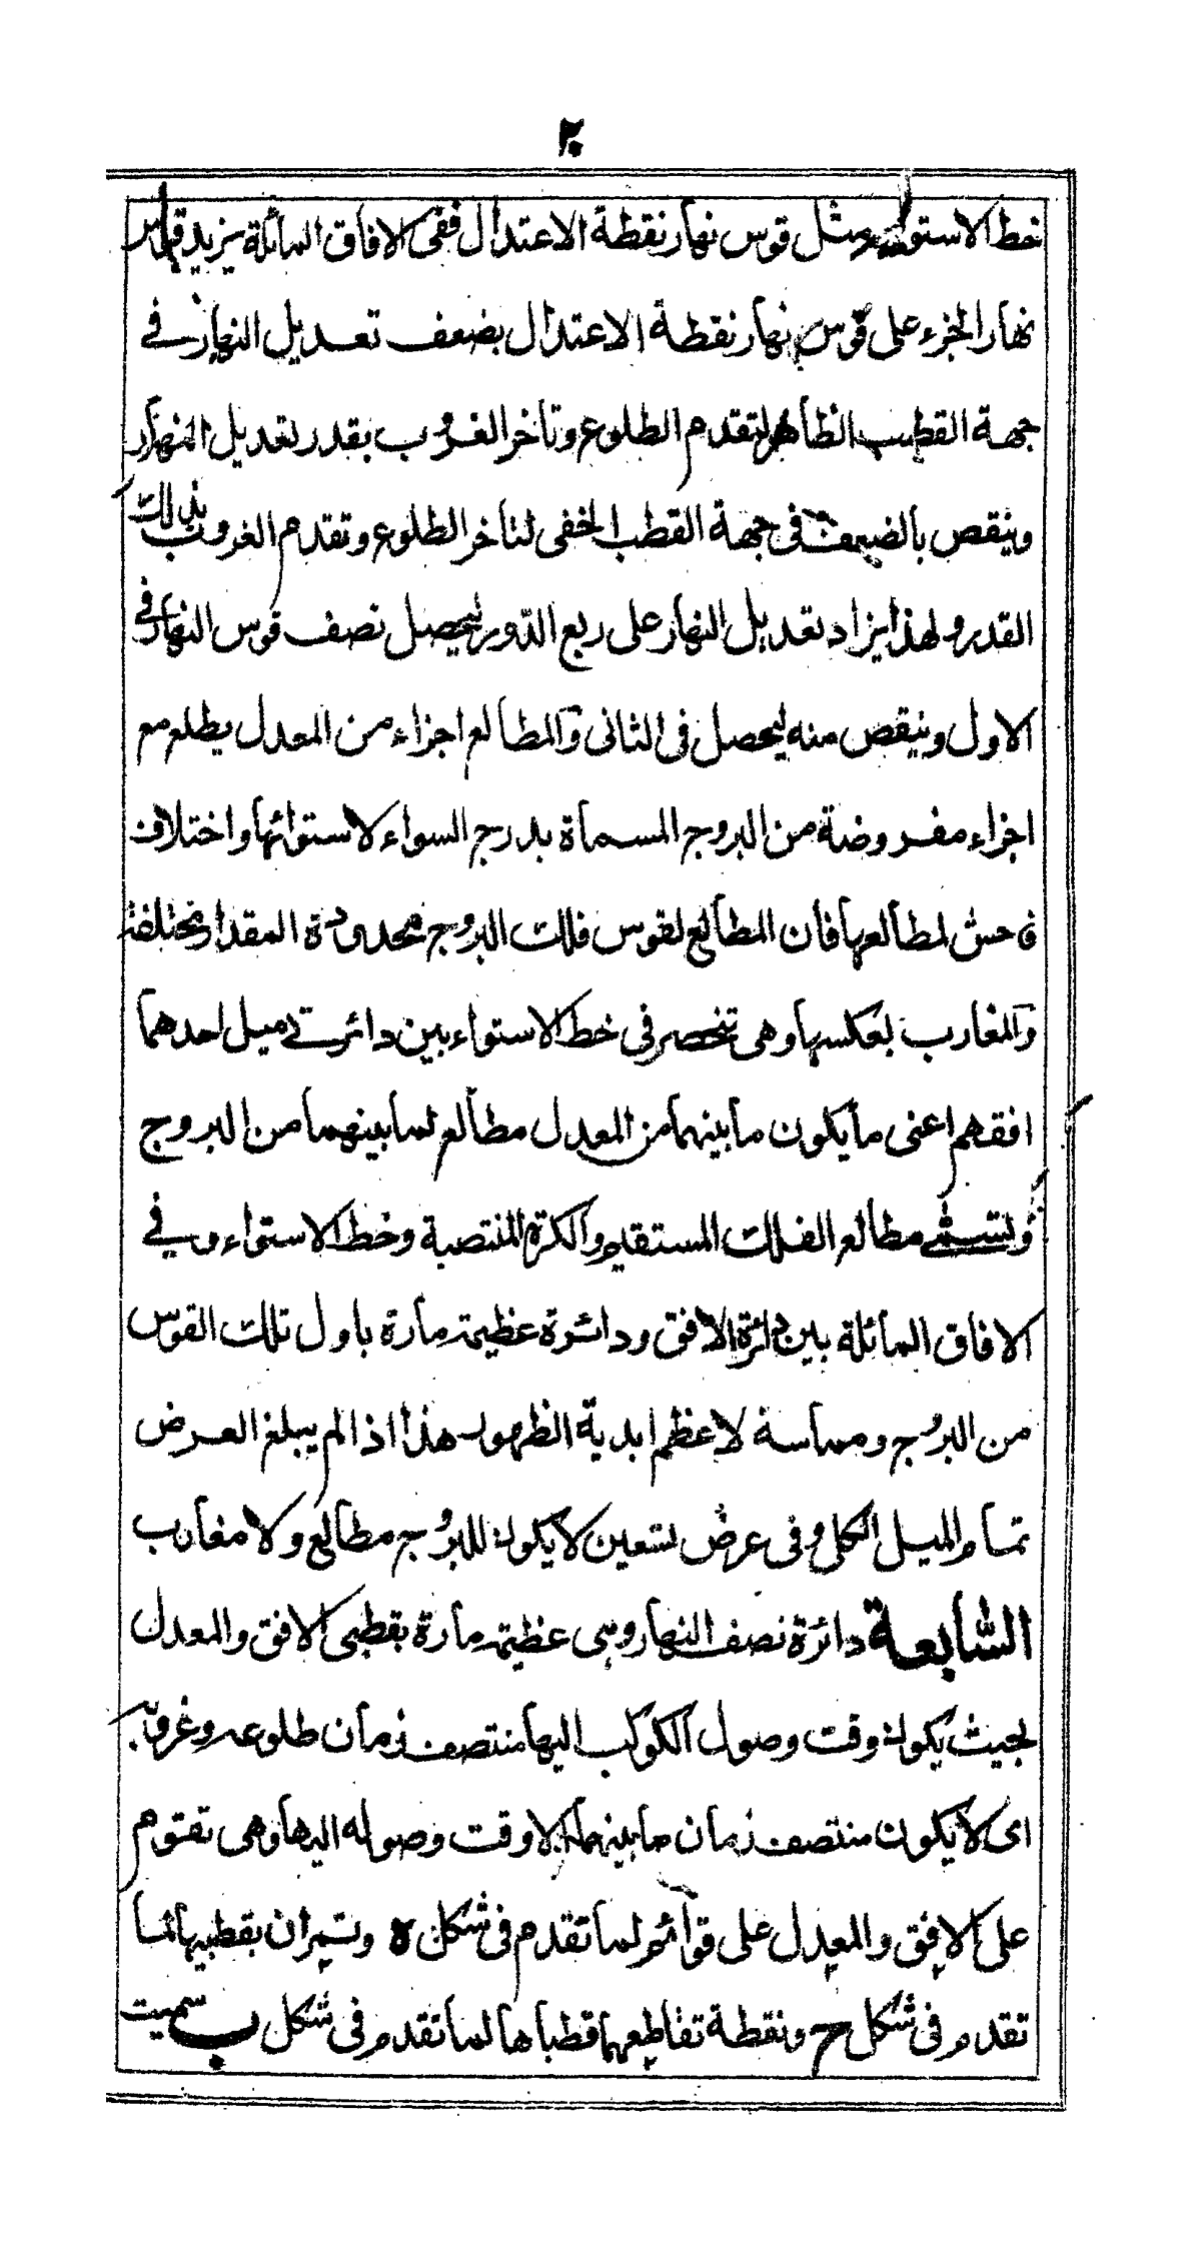 ٢٠
خط الاستواء مثل قوس نهار نقطة الاعتدال ففى الافاق المائلة يزيد قوس
نهار الجزء على قوس نهار نقطة الاعتدال بضعف تعديل النهار فے
جهة القطب الظاهر لتقدم الطلوع وتأخر الغروب بقدر تعديل النهار
وينقص بالضعف فى جهة القطب الخفى لتأخر الطلوع وتقدم الغروب بذلك
القدر ولهذا يزاد تعديل النهار على ربع الدّور ليحصل نصف قوس النهار فے
الاول وينقص منه ليحصل فى الثانى والمطالع اجزاء من المعدل يطلع مع
اجزاء مفروضة من البروج المسماة بدرج السواء لاستوائها واختلاف
فاحش لمطالعها فان المطالع لقوس فلك البروج محدودة المقدار مختلفة
والمغارب بعكسها وهى تنحصر فى خط الاستواء بين دائرتے ميل احدهما
افقهم اعنى ما يكون ما بينهما من المعدل مطالع لما بينهما من البروج
وتسمے مطالع الفلك المستقيم والكرة المنتصبة وخط الاستواء وفے
الافاق المائلة بين دائرة الافق ودائرة عظيمة مارة باول تلك القوس
من البروج ومماسة لاعظم ابدية الظهور هذا اذا لم يبلغ العرض
تمام الميل الكلى وفى عرض تسعين لا يكون للبروج مطالع ولا مغارب
السّابعة دائرة نصف النهار وهى عظيمة مارة بقطبى الافق والمعدل
بحيث يكون وقت وصول الكوكب اليها منتصف زمان طلوعه وغروبه
اى لا يكون منتصف زمان ما بينهما الا وقت وصوله اليها وهى تقوم
على الافق والمعدل على قوائم لما تقدم فى شكل ه وتمران بقطبيها لما
تقدم فى شكل ح ونقطة تقاطعهما قطباها لما تقدم فى شكل ب سميت